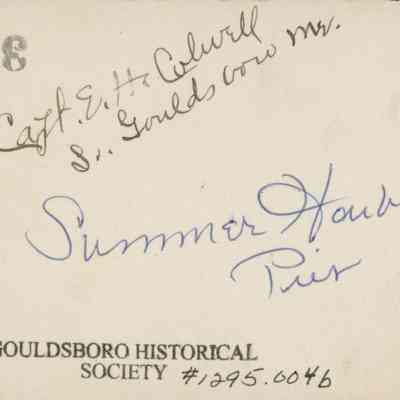 8
Capt. E. H. Colwell
So. Gouldsboro Me.
Summer Harb
Pier
GOULDSBORO HISTORICAL
SOCIETY #1295.004b